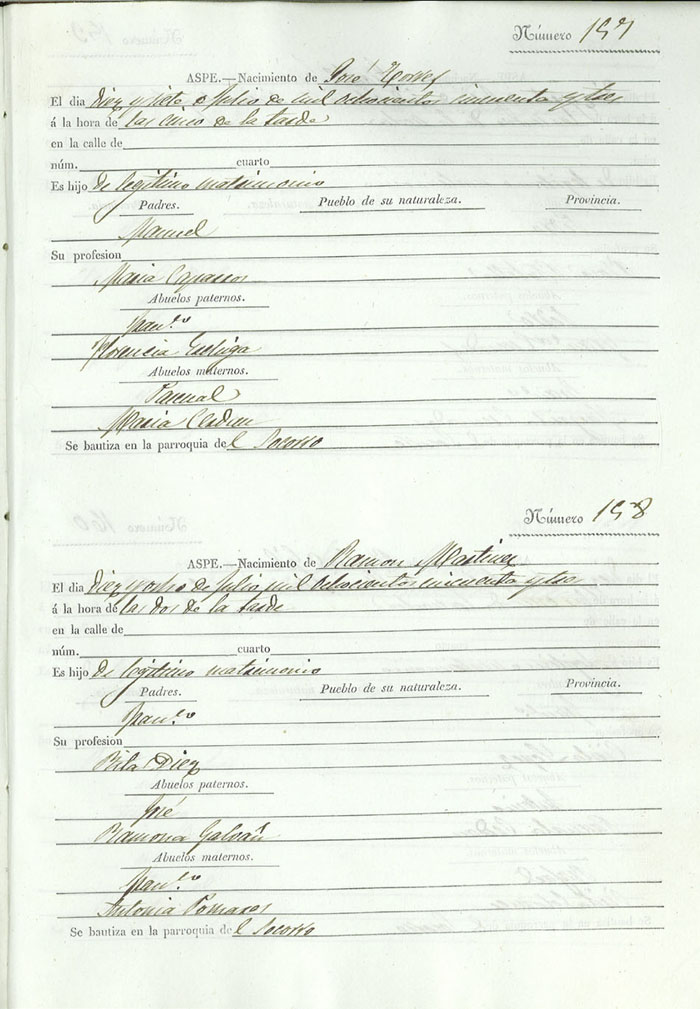 Número 157
ASPE.—Nacimiento de José Torres
El dia Diez y siete de Julio de mil ochocientos cincuenta y tres
á la hora de las cinco de la tarde
en la calle de
núm. cuarto
Es hijo de legitimo matrimonio
Padres. Pueblo de su naturaleza. Provincia.
Manuel
Su profesion
Maria
Abuelos paternos.
Fran.co
Florencia
Abuelos maternos.
Pascual
Maria
Se bautiza en la parroquia del Socorro
Número 158
ASPE.—Nacimiento de Ramon Martinez
El dia Diez y ocho de Julio mil ochocientos cincuenta y tres
á la hora de las dos de la tarde
en la calle de
núm. cuarto
Es hijo de legitimo matrimonio
Padres. Pueblo de su naturaleza. Provincia.
Fran.co
Su profesion
Rita Diez
Abuelos paternos.
José
Ramona Galvañ
Abuelos maternos.
Fran.co
Antonia Pomares
Se bautiza en la parroquia del Socorro